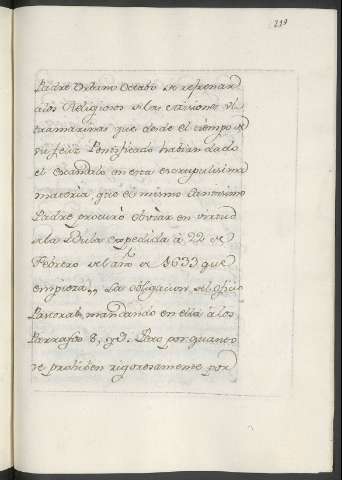 239
Padre Urbano Octabo de refrenar
a los Religiosos de las missiones Ul
tramarinas que desde el tiempo de
su feliz Pontificado habian dado
el escandalo en esta escrupulisima
materia, que el mismo Santisimo
Padre procuró obviar en virtud
de la Bula expedida à 22 de
Febrero del año de 1633 que
empieza,, La obligacion del Oficio
Pastoral, mandando en ella â los
Parrafos 8, y 9. Pero por quanto
se prohiben rigorosamente por